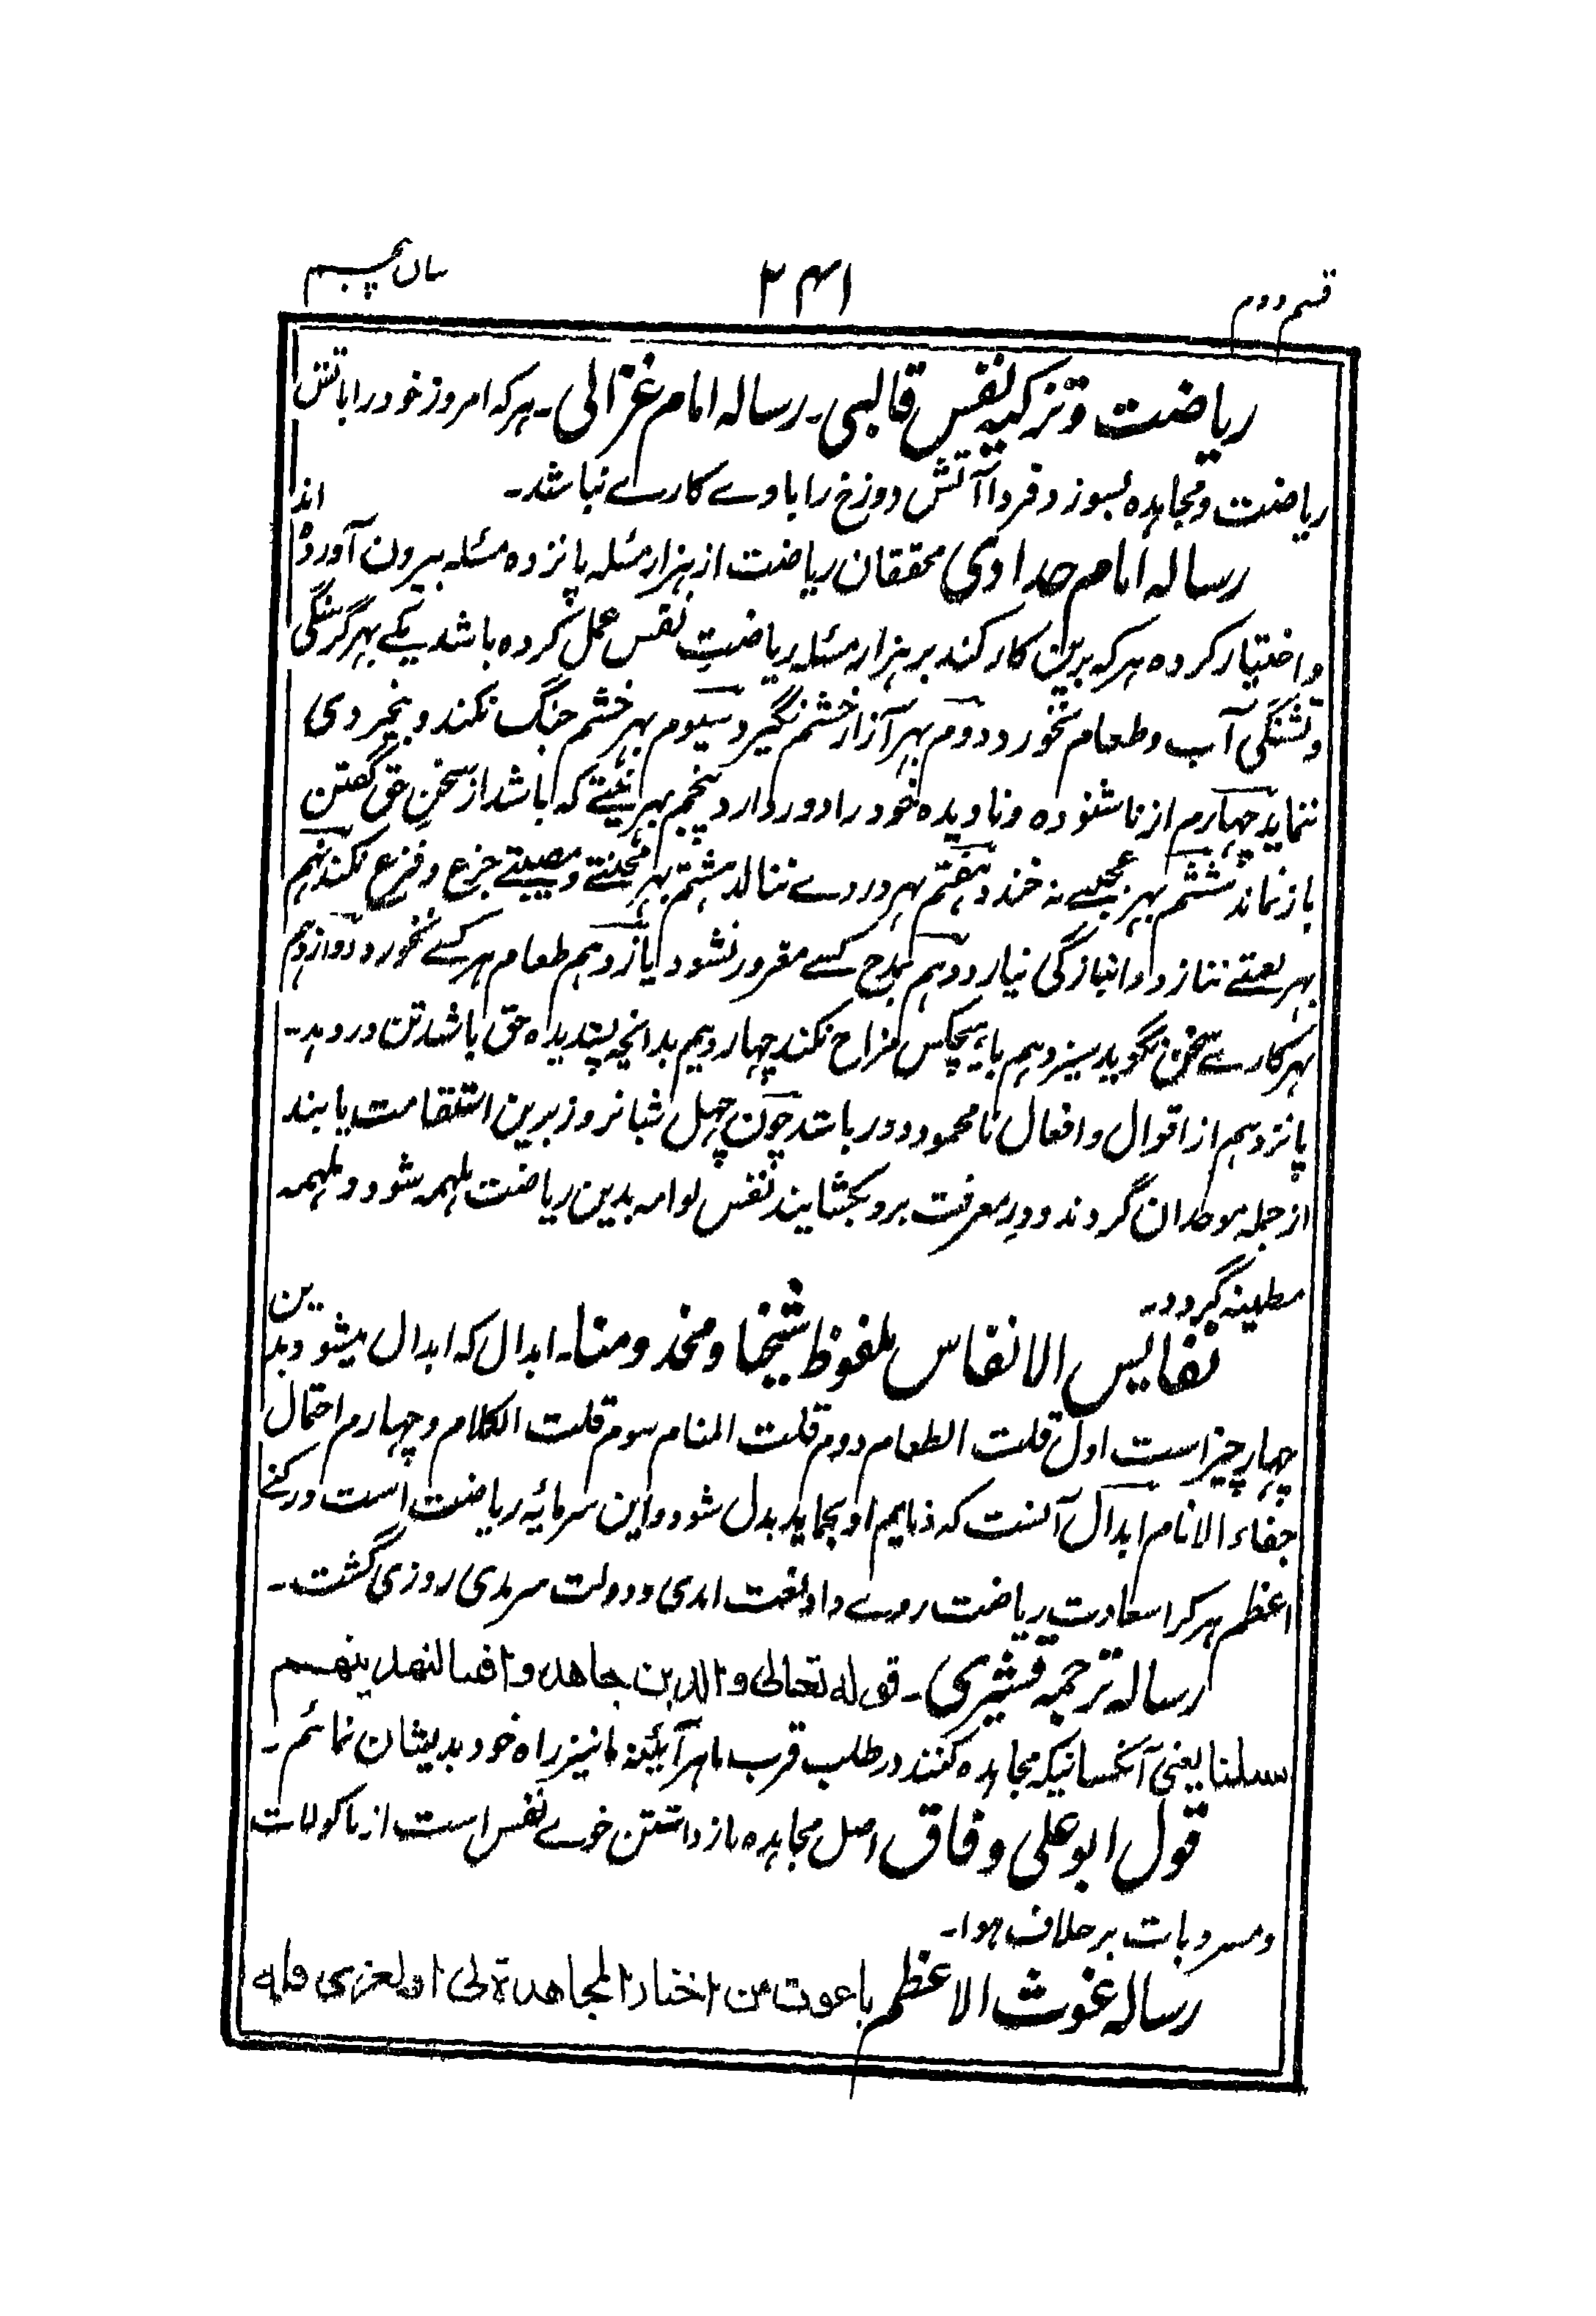 قسم دوم
۲۴۱
بیان پنجم
ریاضت وتزکیہ نفس قالبی۔ رسالہ امام غزالی۔ ہرکہ امروز خود را باتش
ریاضت ومجاہدہ بسوزد فردا آتش دوزخ را باوے کارے نباشد۔
رسالہ امام حدادی محققان ریاضت از ہزار مسئلہ پانزدہ مسئلہ بیرون آوردہ اند
واختیار کردہ ہرکہ برین کار کند بر ہزار مسئلہ ریاضتِ نفس عمل کردہ باشد یکے بہر گرسنگی
وتشنگی آب وطعام نخورد دوم بہر آزار خشم نگیرد سیوم بہر خشم جنگ نکند وبیخردی
ننماید چہارم از ناشنودہ ونادیدہ خود را دور دارد پنجم بہر کہ باشد از سخنِ حق گفتن
باز نماند ششم بہر عجبے نہ خندد ہفتم بہر دردے ننالد ہشتم بہر محنتے ومصیبتے جزع وفزع نکند نہم
بہر نعمتے ننازد وانبازگی نیارد دہم بمدح کسے مغرور نشود یازدہم طعام ہر کسے نخورد دوازدہم
بہر کارے سخن نگوید سیزدہم باہیچکس مزاح نکند چہاردہم بدانچہ پسندیدہ حق باشد تن در دہد۔
پانزدہم از اقوال وافعال نامحمود دور باشد چون چہل شبانروز برین استقامت یابند
از جملہ موحدان گردند ودرِ معرفت برو بکشایند نفس لوامہ بدین ریاضت ملہمہ شود وملہمہ
مطمینہ گردد۔
نفایس الانفاس ملفوظ شیخنا ومخدومنا۔ ابدال کہ ابدال میشود بدین
چہار چیز است اول قلت الطعام دوم قلت المنام سوم قلت الکلام وچہارم احتمال
جفاء الانام ابدال آنست کہ ذمایم او بحماید بدل شود واین سرمائیہ ریاضت است ورکنے
اعظم ہر کرا سعادتِ ریاضت روے داد نعمت ابدی ودولت سرمدی روزی گشت۔
رسالہ ترجمہ قشیری۔ قولہ تعالی والذین جاهدوا فینا لنهدینهم
سبلنا یعنی آنکسانیکہ مجاہدہ کنند در طلب قرب ما ہر آئینہ ما نیز راہ خود بدیشان نمائیم۔
قول ابو علی دقاق اصل مجاہدہ باز داشتن خوے نفس است از ماکولات
ومشروبات برخلاف ہوا۔
رسالہ غوث الاعظم یا غوث من اختار المجاهدة لی اولغیری فله